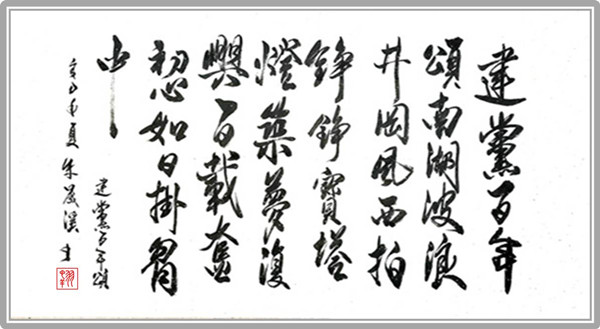 建黨百年
頌南湖波浪
井岡風西柏
錚錚寶塔
燈築夢復
興百載奮
初心如日掛胷
中
建黨百年頌
辛丑年夏 朱溪書